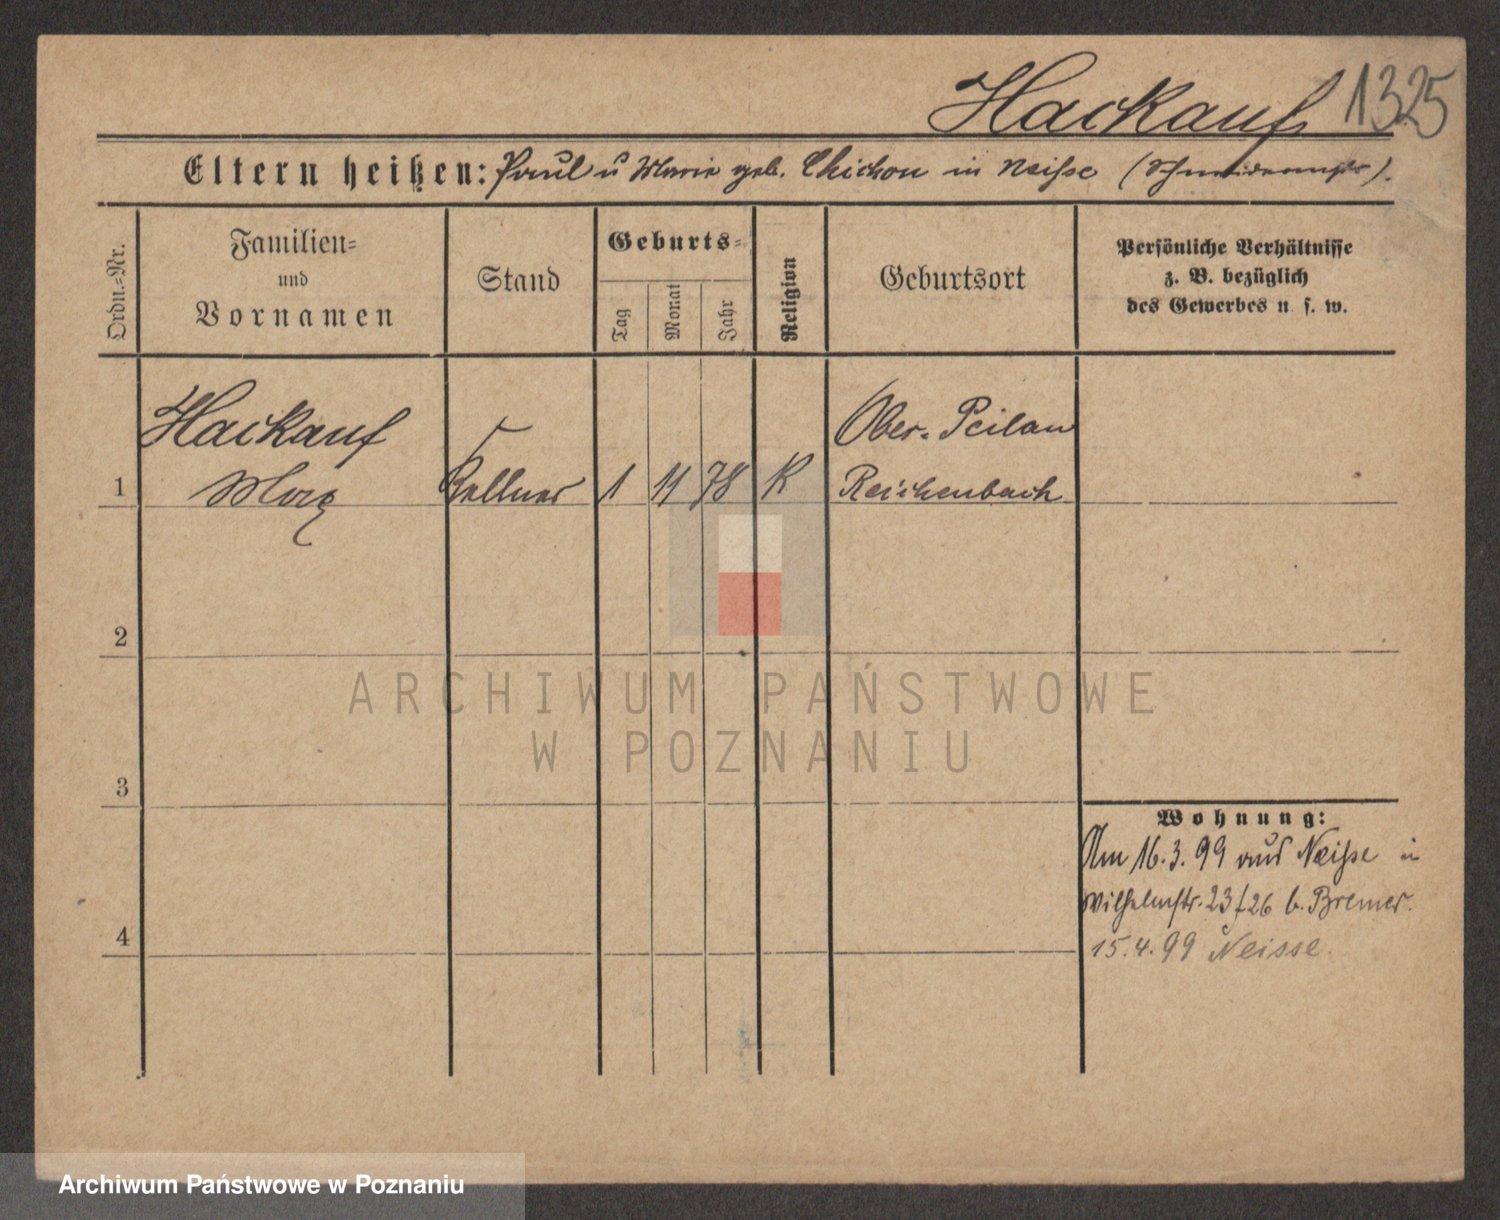 Hackauf 1325
Eltern heißen: Paul u Marie geb. Chichon in Neisse (Schneidermstr).
Ordn.-Nr.
Familien-
und
Vornamen
Stand
Geburts-
Tag
Monat
Jahr
Religion
Geburtsort
Persönliche Verhältnisse
z. B. bezüglich
des Gewerbes u. s. w.
Hackauf Ober-Peilau
1 Max Kellner 1 11 78 K Reichenbach
2
ARCHIWUM PAŃSTWOWE
W POZNANIU
3
Wohnung:
Am 16.3.99 aus Neisse in
Wilhelmstr. 23/26 b. Bremer.
4
15.4.99 Neisse.
Archiwum Państwowe w Poznaniu